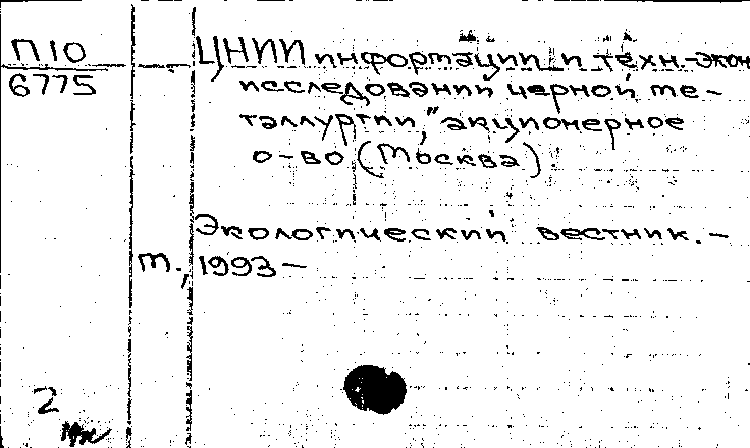 П10
6775
ЦНИИ информации и техн.-экон
исследований черной ме-
таллургии, "акционерное
о-во (Москва)
Экологический вестник. –
м., 1993 –
2